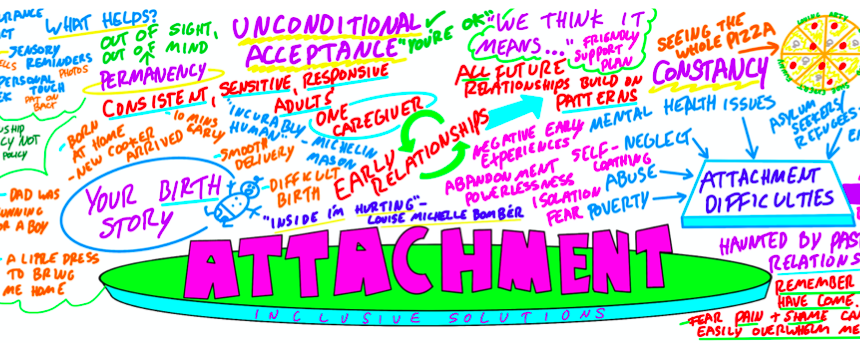 WHAT HELPS?
SENSORY
REMINDERS
PHOTOS
PERSONAL
TOUCH
PAT ON
BACK
OUT OF SIGHT,
OUT OF MIND
PERMANENCY
UNCONDITIONAL
ACCEPTANCE
"YOU'RE OK"
CONSISTENT, SENSITIVE, RESPONSIVE
ADULTS
"WE THINK IT
MEANS..."
FRIENDLY
SUPPORT
PLAN
ALL FUTURE
RELATIONSHIPS BUILD ON
PATTERNS
SEEING THE
WHOLE PIZZA
CONSTANCY
POLICY
- BORN
AT HOME
- NEW COOKER
ARRIVED
10 MINS
EARLY
"INCURABLY
HUMAN"
- MICHELIN
MASON
ONE
CAREGIVER
EARLY
RELATIONSHIPS
- SMOOTH
DELIVERY
- DIFFICULT
BIRTH
YOUR BIRTH
STORY
- DAD WAS
FOR A BOY
- A LITTLE DRESS
TO BRING
ME HOME
"INSIDE I'M HURTING" -
LOUISE MICHELLE BOMBÉR
NEGATIVE EARLY
EXPERIENCES
ABANDONMENT
POWERLESSNESS
ISOLATION
FEAR
SELF-
LOATHING
MENTAL HEALTH ISSUES
NEGLECT
ABUSE
POVERTY
ASYLUM
SEEKERS
REFUGEES
ATTACHMENT
DIFFICULTIES
ATTACHMENT
INCLUSIVE SOLUTIONS
HAUNTED BY PAST
RELATIONS
REMEMBER
HAVE COME
FEAR PAIN + SHAME CAN
EASILY OVERWHELM ME